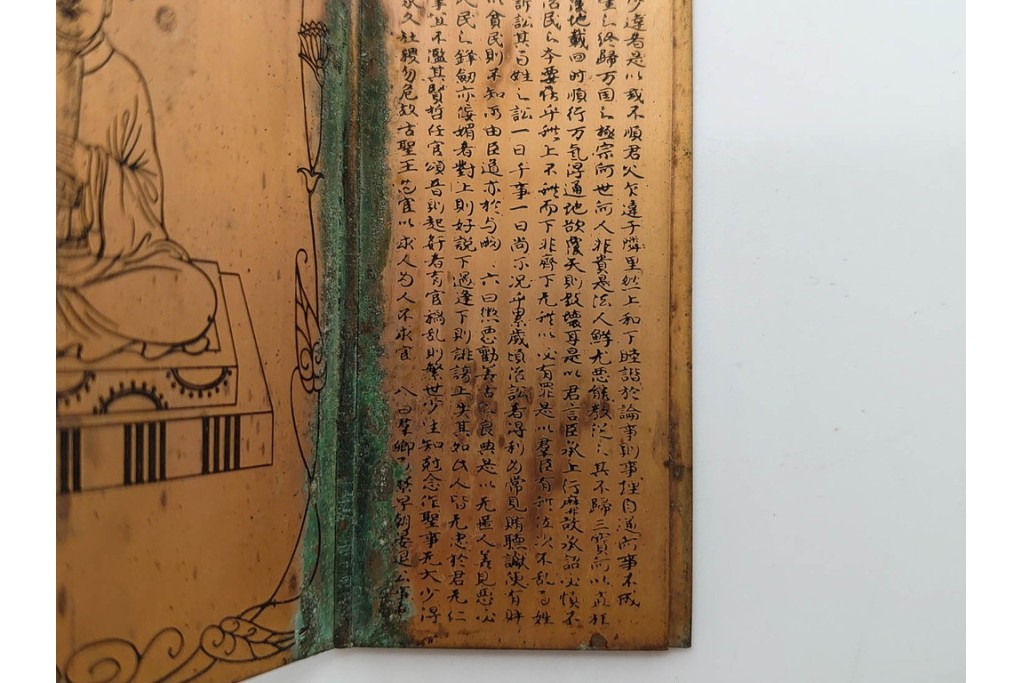 少達者是以或不順君父乍違于隣里然上和下睦諧於論事則事理自通何事不成
生之終歸万国之極宗何世何人非貴是法人鮮尤悪能教従之其不歸三寳何以直枉
覆地載四時順行万氣得通地欲覆天則致壊耳是以君言臣承上行靡故承詔必慎不
治民之本要在乎礼上不礼而下非齊下无礼以必有罪是以羣臣有礼位次不乱百姓
訴訟其百姓之訟一日千事一日尚尓况乎累歳頃治訟者得利為常見賄聴讞便有財
以貧民則不知所由臣道亦於焉闕 六曰懲悪勸善古之良典是以无匿人善見悪必
人民之鋒劔亦侫媚者對上則好説下過逢下則誹謗上失其如此人皆无忠於君无仁
掌宜不濫其賢哲任官頌音則起奸者有官禍乱則繁世少生知尅念作聖事无大少得
永久社稷勿危故古聖王為官以求人為人不求官 八曰羣卿百寮早朝晏退公事